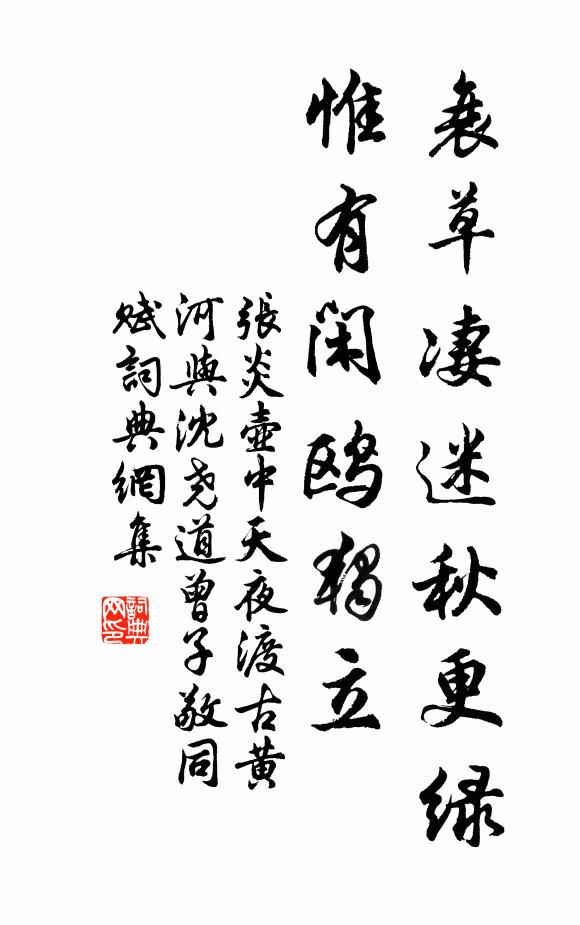 衰草凄迷秋更绿
惟有闲鸥獨立
張炎壺中天夜渡古黄
河與沈堯道曾子敬同
赋詞典網集
詞典
网印